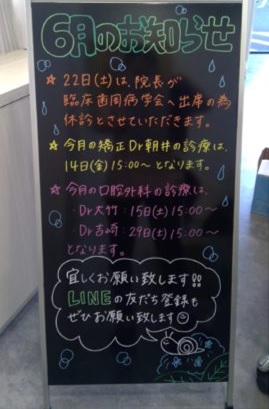 6月のお知らせ
☆ 22日(土)は、院長が
臨床歯周病学会へ出席の為
休診とさせていただきます。
☆ 今月の矯正Dr朝井の診療は、
14日(金) 15:00〜となります。
☆ 今月の口腔外科の診療は、
・Dr大竹:15日(土)15:00〜
・Dr吉崎:29日(土)15:00〜
となります。
宜しくお願い致します!!
LINEの友だち登録も
ぜひお願い致します